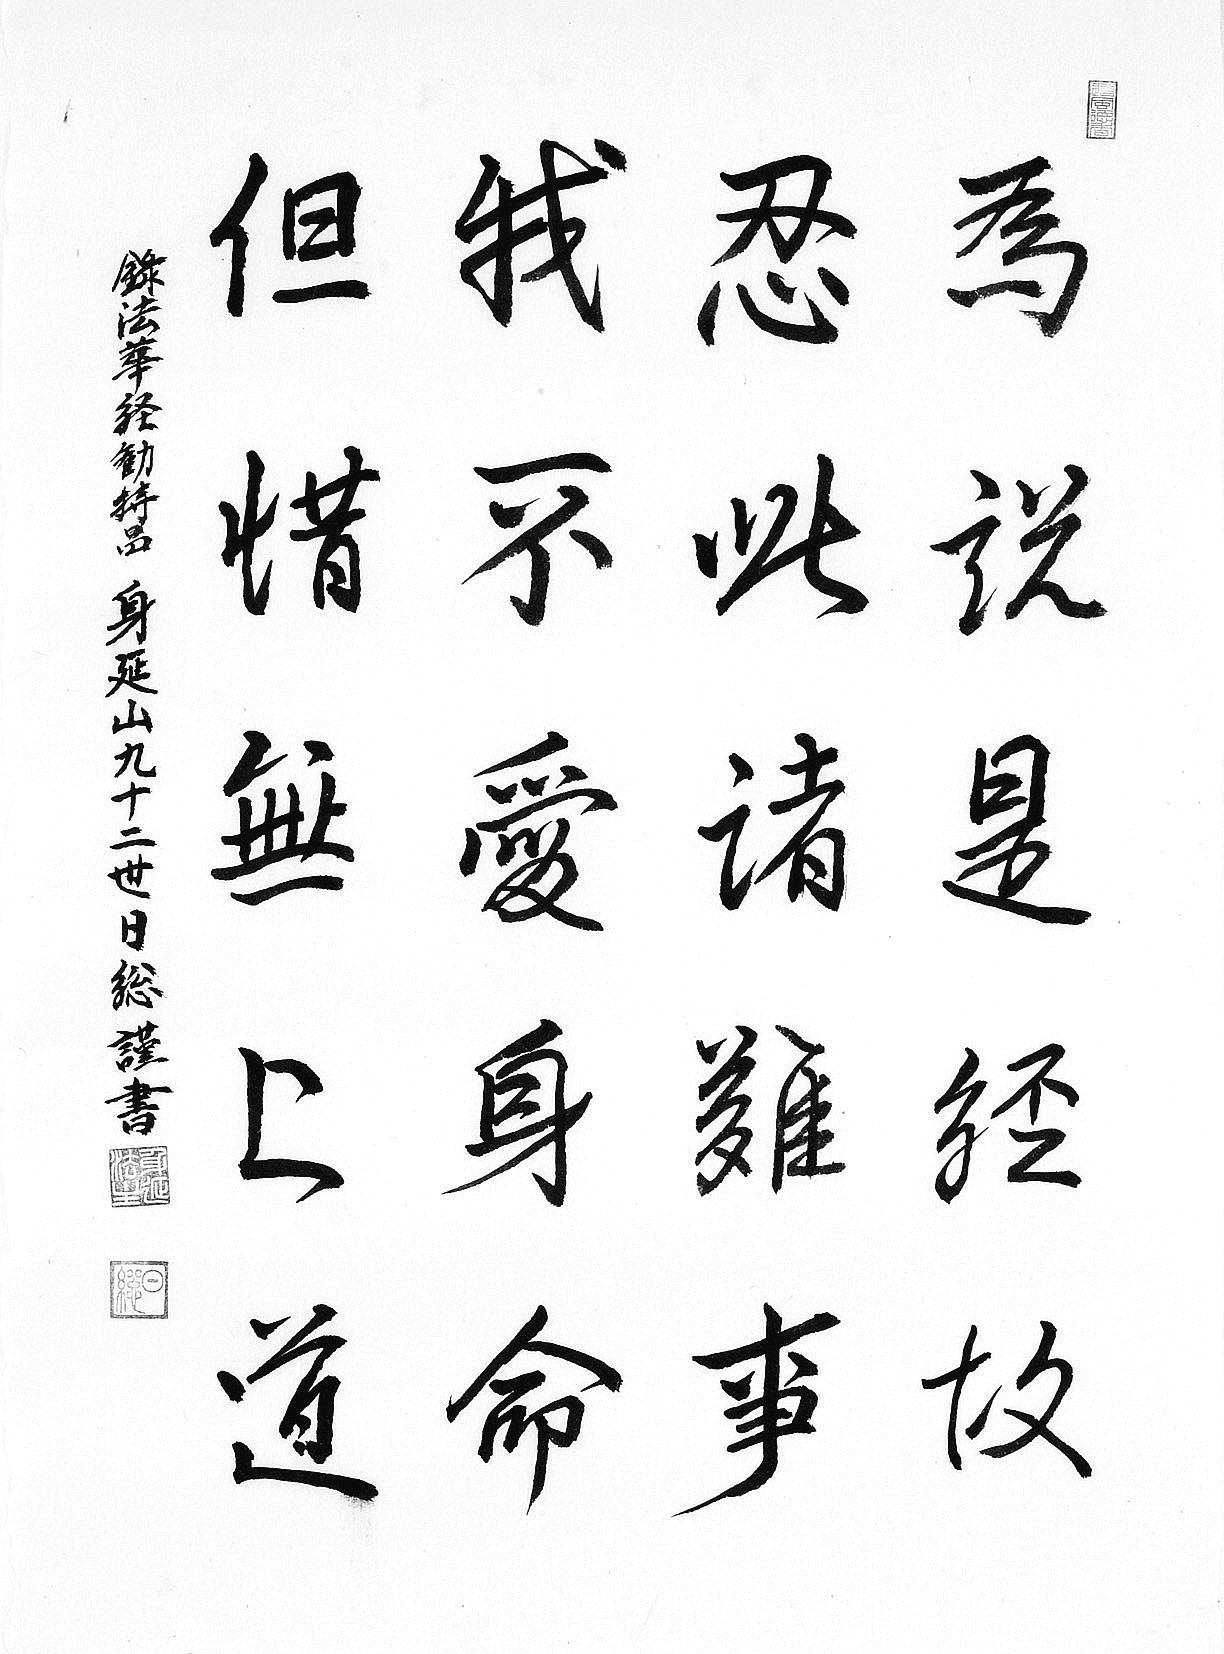 為説是経故
忍此諸難事
我不愛身命
但惜無上道
錄法華経勧持品 身延山九十二世日総謹書
身延法主
日總